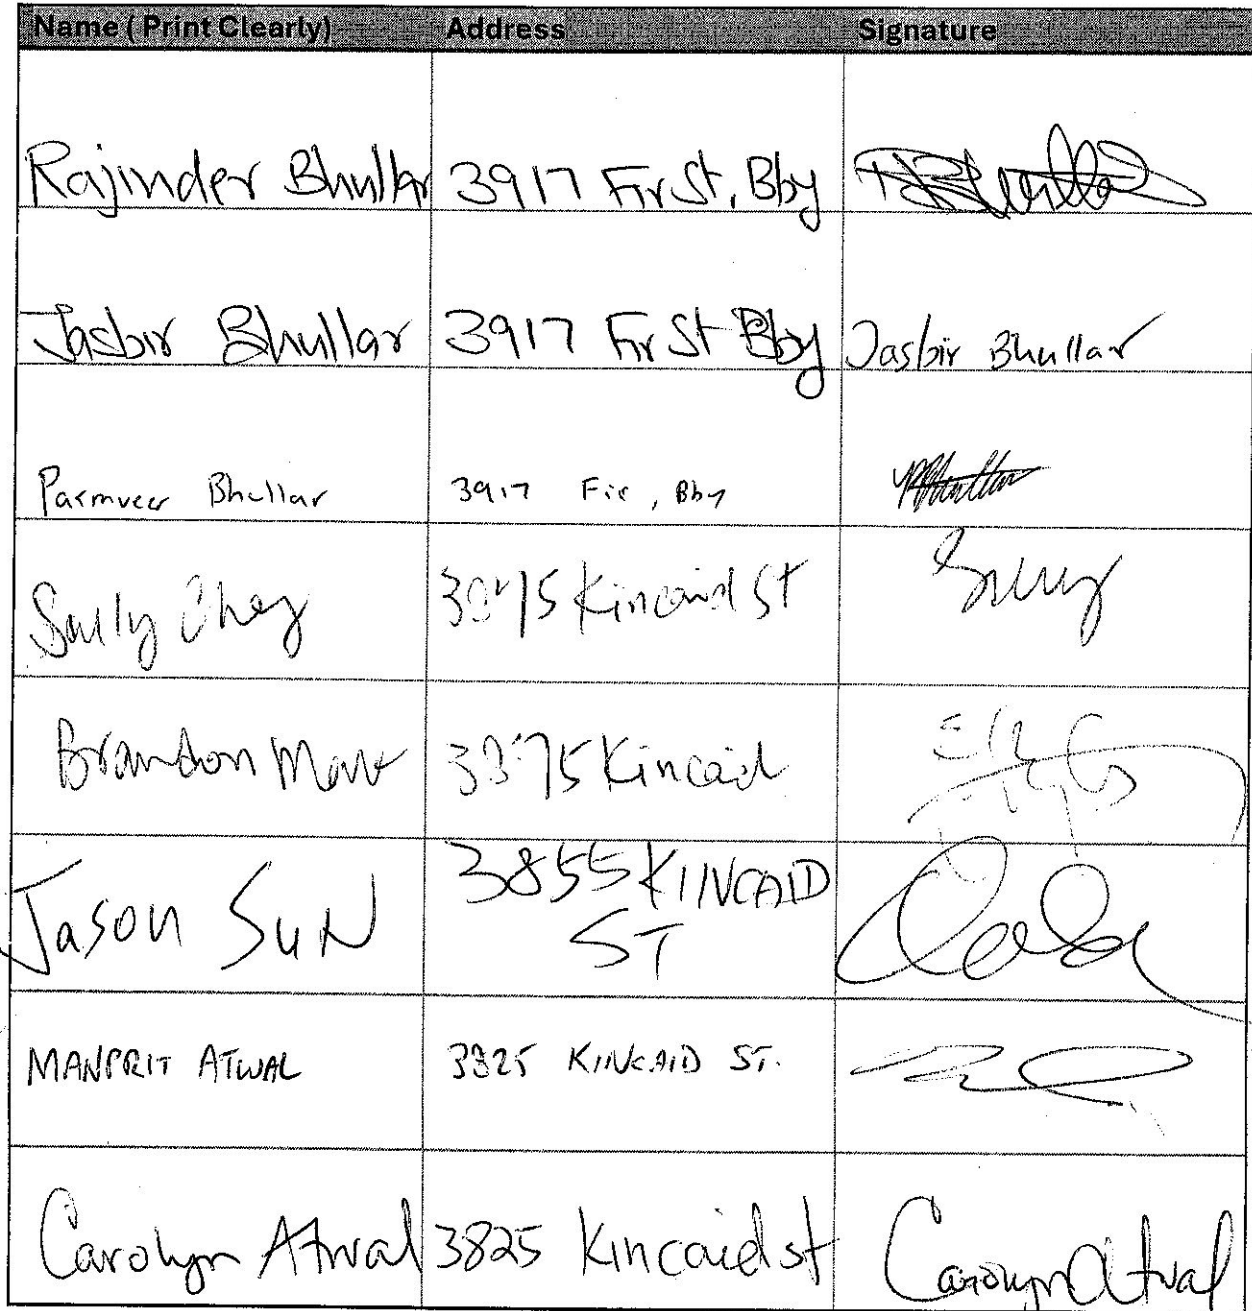 Name ( Print Clearly) Address Signature
Rajinder Bhullar 3917 Fir St, Bby
Jasbir Bhullar 3917 Fir St Bby Jasbir Bhullar
Parmveer Bhullar 3917 Fir, Bby
Sally Kincaid St
Brandon Kincaid
Jason Sun 3855 KINCAID
ST
MANPRIT ATWAL 3825 KINCAID ST.
Carolyn Atwal 3825 Kincaid st Carolyn Atwal